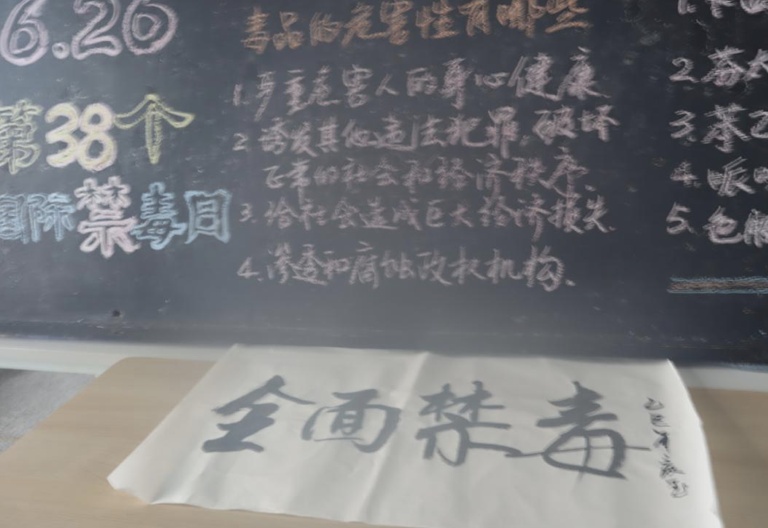 6.26
第38个
国际禁毒日
毒品的危害性有哪些
1.严重危害人的身心健康
2.诱发其他违法犯罪,破坏
正常的社会和经济秩序.
3.给社会造成巨大经济损失.
4.渗透和腐蚀政权机构.
2.芬太
3.苯乙
4.哌
5.色胺
全面禁毒